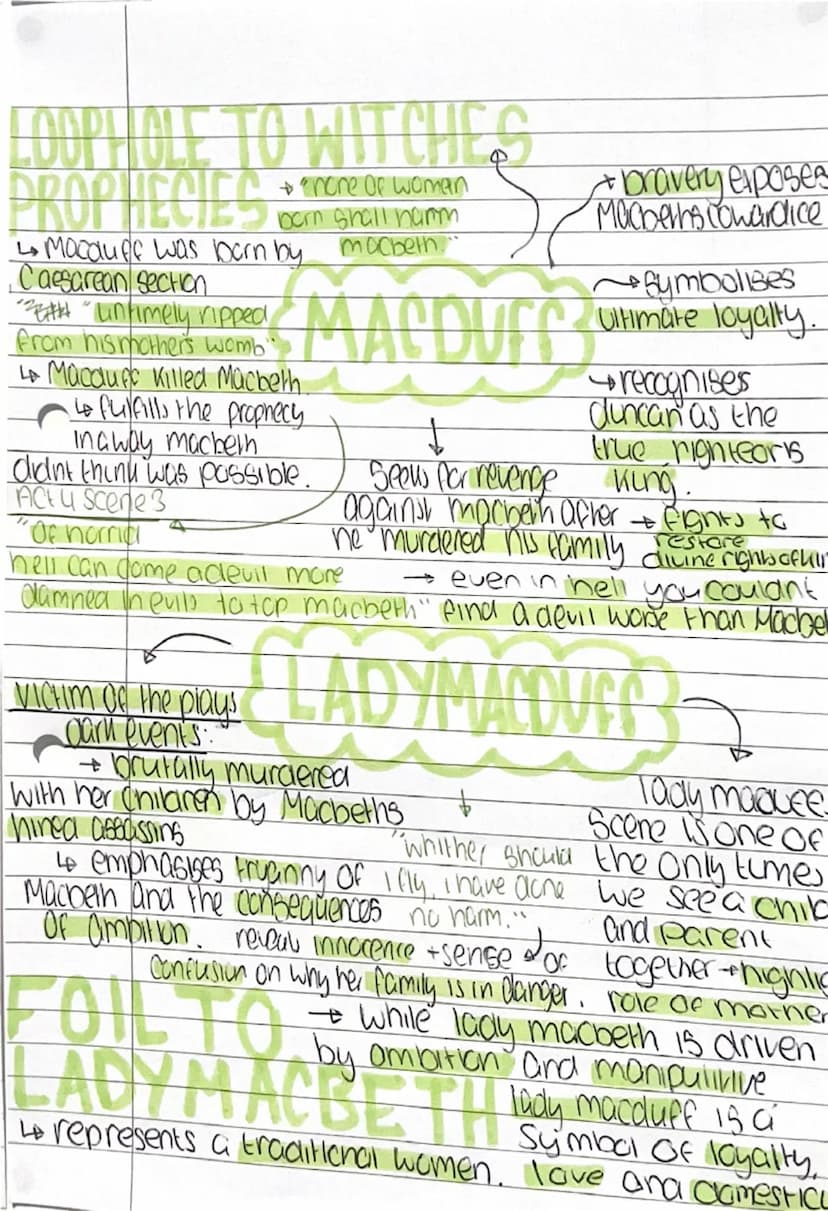 LOOPHOLE TO WITCHES
PROPHECIES
→ "none of woman
born shall harm
macbeth"
↳ Macduff was born by
Caesarean section
"untimely ripped
from his mothers womb"
↳ Macduff killed Macbeth
↳ fulfills the prophecy
in a way macbeth
didnt think was possible.
ACT 4 SCENE 3
"Of horrid
hell can come a devil more
damned in evils to top macbeth"
→ even in hell you couldnt
find a devil worse than Macbe
MACDUFF
→ bravery exposes
Macbeths cowardice
→ symbolises
ultimate loyalty.
→ recognises
duncan as the
true
king.
→ fights to
restore
divine rights of
Seeks for revenge
against macbeth after
he murdered his family
LADY MACDUFF
VICTIM OF the plays
dark events:
→ brutally murdered
with her children by Macbeths
hired assassins
↳ emphasises of
Macbeth and the consequences
of ambition.
"whither should
I fly, i have done
no harm."
reveal innocence + sense of
confusion on why her family is in danger.
lady
scene is one of
the only times
we see a chil
and parent
together → highli
role of mother
FOIL TO
LADY MACBETH
→ while lady macbeth is driven
by ambition and
lady macduff is a
symbol of loyalty,
love and domestic
↳ represents a traditional women.